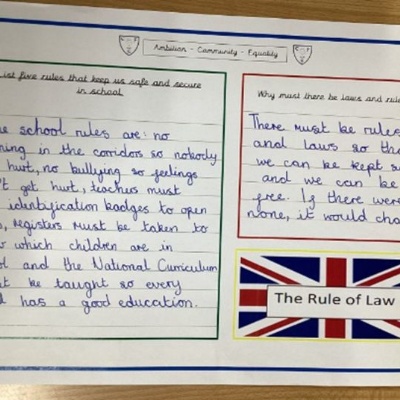 Ambition - Community - Equality
ist five rules that keep us safe and secure
in school.
school rules are: no
in the corridors so nobody
hurt, no bullying so feelings
get hurt, teachers must
identification badges to open
registers must be taken to
which children are in
and the National Curriculum
be taught so every
has a good education.
Why must there be laws and rule
There must be rules
and laws so tha
we can be kept s
and we can be
free. If there were
none, it would cha
The Rule of Law